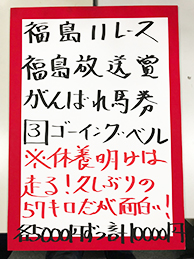 福島11レース
福島放送賞
がんばれ馬券
3 ゴーイング・ベル
※休養明けは
走る！久しぶりの
57キロだが面白い！
各5000円ずつ計10000円！